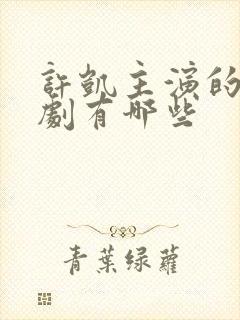 許凱主演的
劇有哪些
青葉绿蘿